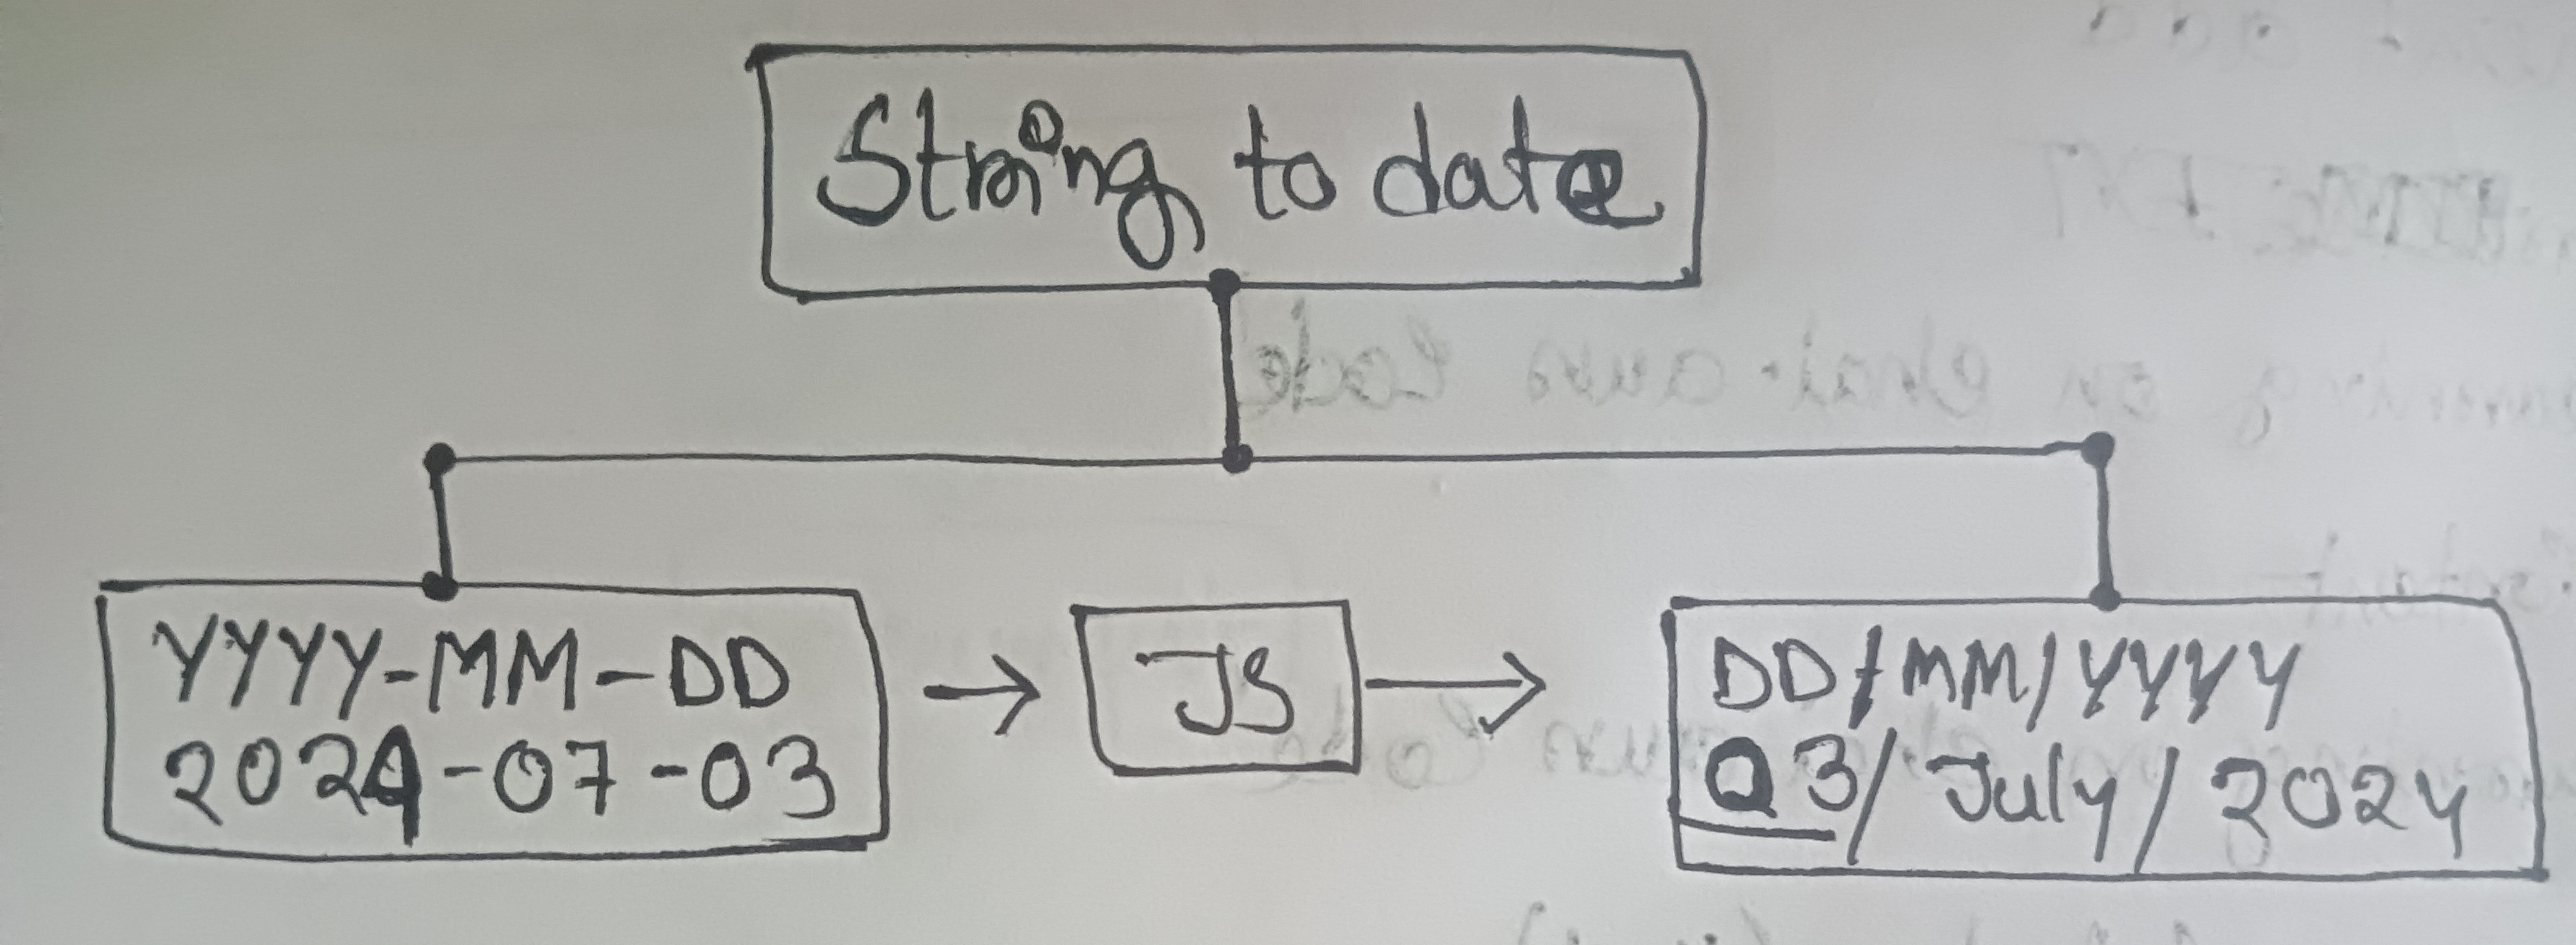 String to date
YYYY-MM-DD
2024-07-03
JS
DD/MM/YYYY
03/July/2024